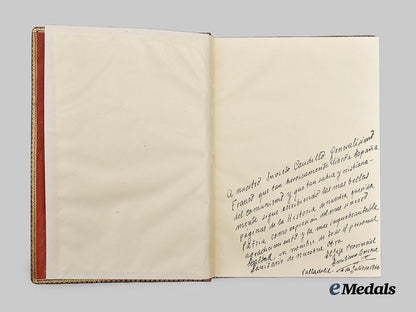 A nuestro Invicto Caudillo Generalísimo
Franco que tan heroicamente libertó España
del comunismo y que tan sabia y cristiana-
mente sigue escribiendo las mas bellas
páginas de la Historia de nuestra querida
Patria como expresión del mas sincero
agradecimiento y la mas inquebrantable
lealtad en nombre de todo el personal
Sanitario de nuestra Obra
El Jefe Provincial
Valladolid 1946
eMedals